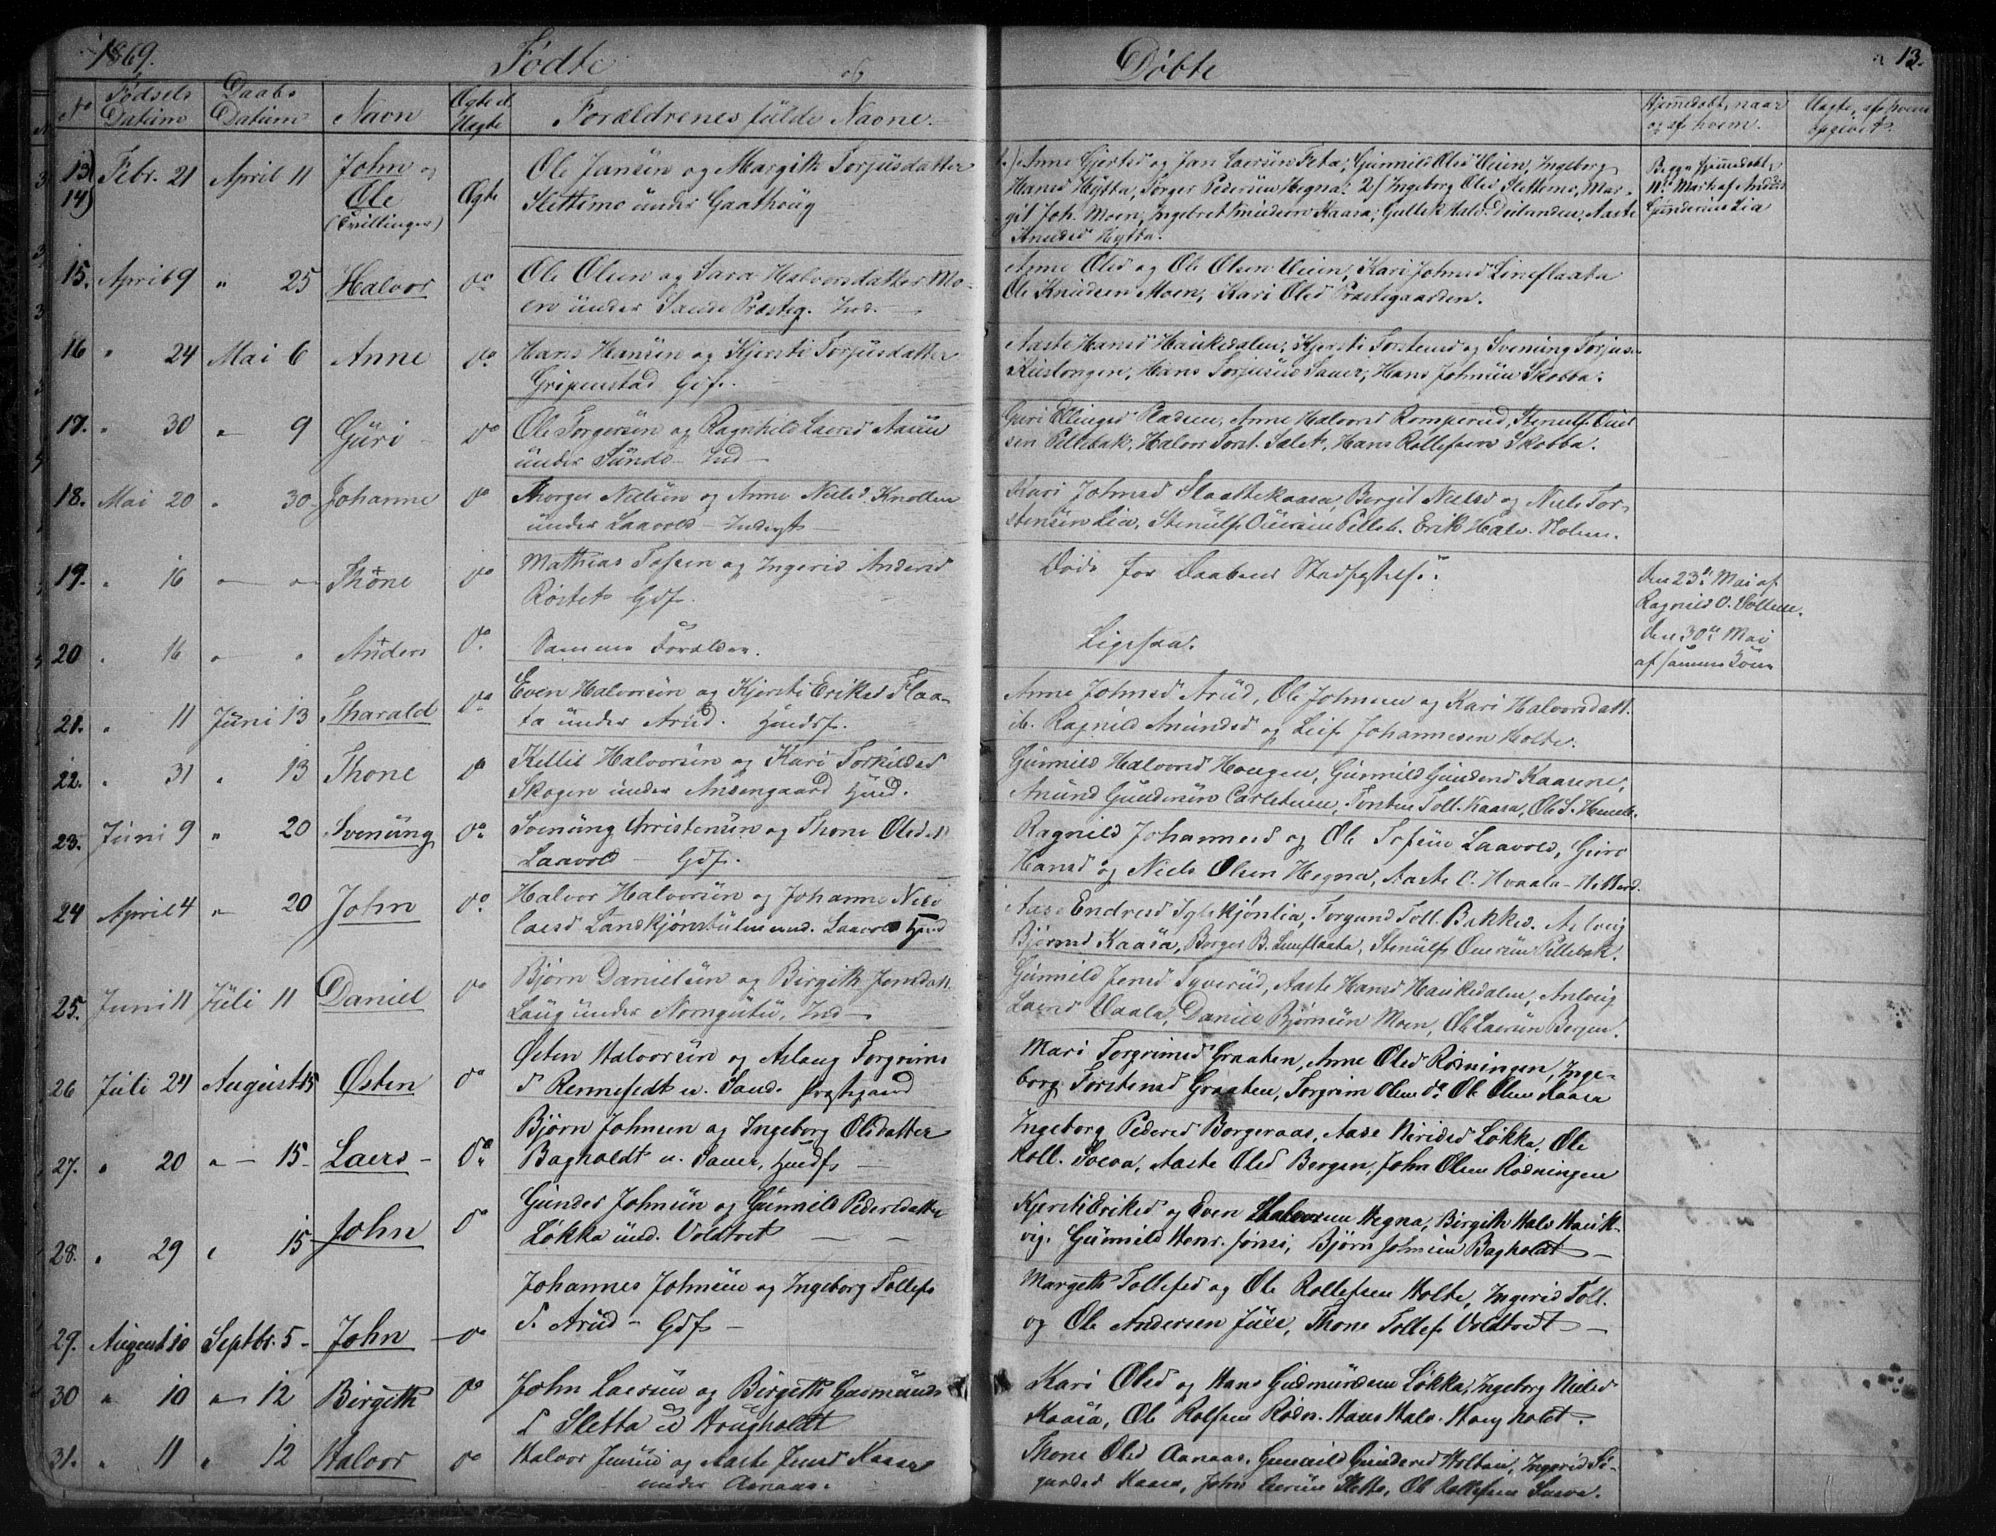 1869.
Fødte
og
Døbte
13.
No
Fødsels Datum
Daabs Datum
Navn
Ægte el. Uægte
Forældrenes fulde Navne.
Hjemmedøbt, naar og af hvem.
Uægte, af hvem opgivet.
13) 14) Febr. 21 April 11 John og Ole (Tvillinger) Ægte
Ole Jansen og Margith Torjusdatter
Slettemo under Gaathoug
1.) Anne Gjertsd og Jan Laersen Teta, Gunnild Olsd Veien, Ingeborg
Hansd Hytta, Torger Pedersen Hegna. 2/ Ingeborg Olsd Slettemo, Mar-
git Joh. Moen, Ingebret Knudsen Kaasa, Gullek Halv. Deilanden, Aaste
Knudsd Hytta.
Begge hjemmedøbt
11te Mark af Anders
Gundersen Lia
15. April 9 " 25 Halvor do
Ole Olsen og Sara Halvorsdatter Mo-
en under Sande Præsteg. Ind.
Anne Olsd og Ole Olsen Veien, Kari Johnsd Lineflaata
Ole Knudsen Moen, Kari Olsd Præstegaarden.
16 " 24 Mai 6 Anne do
Hans Hansen og Kjersti Torjusdatter
Gripenstad Gdf.
Aaste Hansd Haukedalen, Kjersti Torstensd og Svenung Torjus.
Hans Torjusen Sauer, Hans Johnsen Skobba.
17. " 30 " 9 Guri do
Ole Torgersen og Ragnhild Laersd
under Sunde Ind
Guri Ellingsd Pladsen, Anne Halvorsd Romperud, Stenulf
sen Pillebak, Halvor Torst. Hans Rollefsen Skobba.
18. Mai 20 " 30 Johanne do
Thorger Nielsen og Anne Nielsd Knollen
under Laavold Inderst
Kari Johnsd Slaattekaasa, Bergit Nielsd og Niels Tor-
stensen Lia, Stenulf Pilleb. Erik Halv. Holm.
19. " 16 Thone do
Mathias Tofsen og Ingerid Andersd
Røstet Gdf.
Døde før Daabens Stadfæstelse.
den 23de Mai af
Ragnild O. Vollene.
20 " 16 " " Anders do
Samme Forældre.
Ligesaa.
den 30te Mai
af samme Kone
21. " 11 Juni 13 Tharald do
Even Halvorsen og Kjersti Eriksd Flaa-
ta under Arud. Husmf.
Anne Johnsd Arud, Ole Johnsen og Kari Halvorsdatt.
ib. Ragnild Amundsd og Leif Johannesen Holte.
22. " 31 " 13 Thone do
Kittil Halvorsen og Kari Torkildsd
Skogen under Aasengaard Husd.
Gunnild Halvorsd Hougen, Gunnild Gundersd Kaasene,
Anund Gundersen Torsten Toll. Kaasa, Ole S.
23. Juni 9 " 20 Svenung do
Svenung Christensen og Thone Olsd
Laavold Gdf.
Ragnild Johannesd og Ole Tofsen Laavold, Guro
Hansd og Niels Olsen Hegna, Aaste C. Hvaala
24 April 4 " 20 John do
Halvor Halvorsen og Johanne Niko
laesd Landskjønstulen und. Laavold Husd
Aase Endresd Torgund Toll. Bakka. Aslaug
Bjørnsd Kaasa, Borger B. Lineflaata, Stenulf Pillebak.
25. Juni 11 Juli 11 Daniel do
Bjørn Danielsen og Birgith Jensdatt.
Laug under Nornguttu, Ind
Gunnild Jensd Tyverud, Aaste Hansd Haukedalen, Anlaug
Laersd Vaala, Daniel Bjørnsen Moen, Ole Laersen Bergen.
26 Juli 24 August 15 Østen do
Østen Halvorsen og Aslaug Torgrims
d Rennefedt u. Sand. Præstgaard
Mari Torgrimsd Graaten, Anne Olsd Rødningen, Inge-
borg Torstensd Graaten, Torgrim Olsen do Ole Olsen Kaasa
27. " 20 " 15 Laers do
Bjørn Johnsen og Ingeborg Olsdatter
Bagholdt u. Sauer, Husf
Ingeborg Pedersd Borgeraas, Aase Nirisd Løkka, Ole
Roll. Sueva, Aaste Olsd Bergen, John Olsen Rødningen
28. " 29 " 15 John do
Gunder Johnsen og Gunnild Pedersdatter
Løkka und. Voldtvet
Kjersti Eriksd og Even Halvorsen Hegna, Birgith Halv Hauk-
vig. Gunnild Henr. Jønsi, Bjørn Johnsen Bagholdt
29. August 10 Septbr. 5 John do
Johannes Johnsen og Ingeborg Tollefs
d. Arud Gdf
Margeth Tollefsd og Ole Rollefsen Holte, Ingerid Toll.
og Ole Andersen Juve, Thone Tollefs Voldtvedt
30 " 10 " 12 Birgith do
John Laersen og Birgith Gudmunds
d Sletta u Hougholdt
Kari Olsd og Hans Gudmundsen Løkka, Ingeborg Nielsd
Kaasa, Ole Rolfsen Rødn. Hans Halv. Hougholdt.
31. " 11 " 12 Halvor do
Halvor Jensen og Aaste Jensd Kaasa
under Aanaas.
Thone Olsd Aanaas, Gunnild Gundersd Holtan, Ingerid Si-
gurdsd Kaasa, John Laersen Sletta, Ole Rollefsen Sueva.